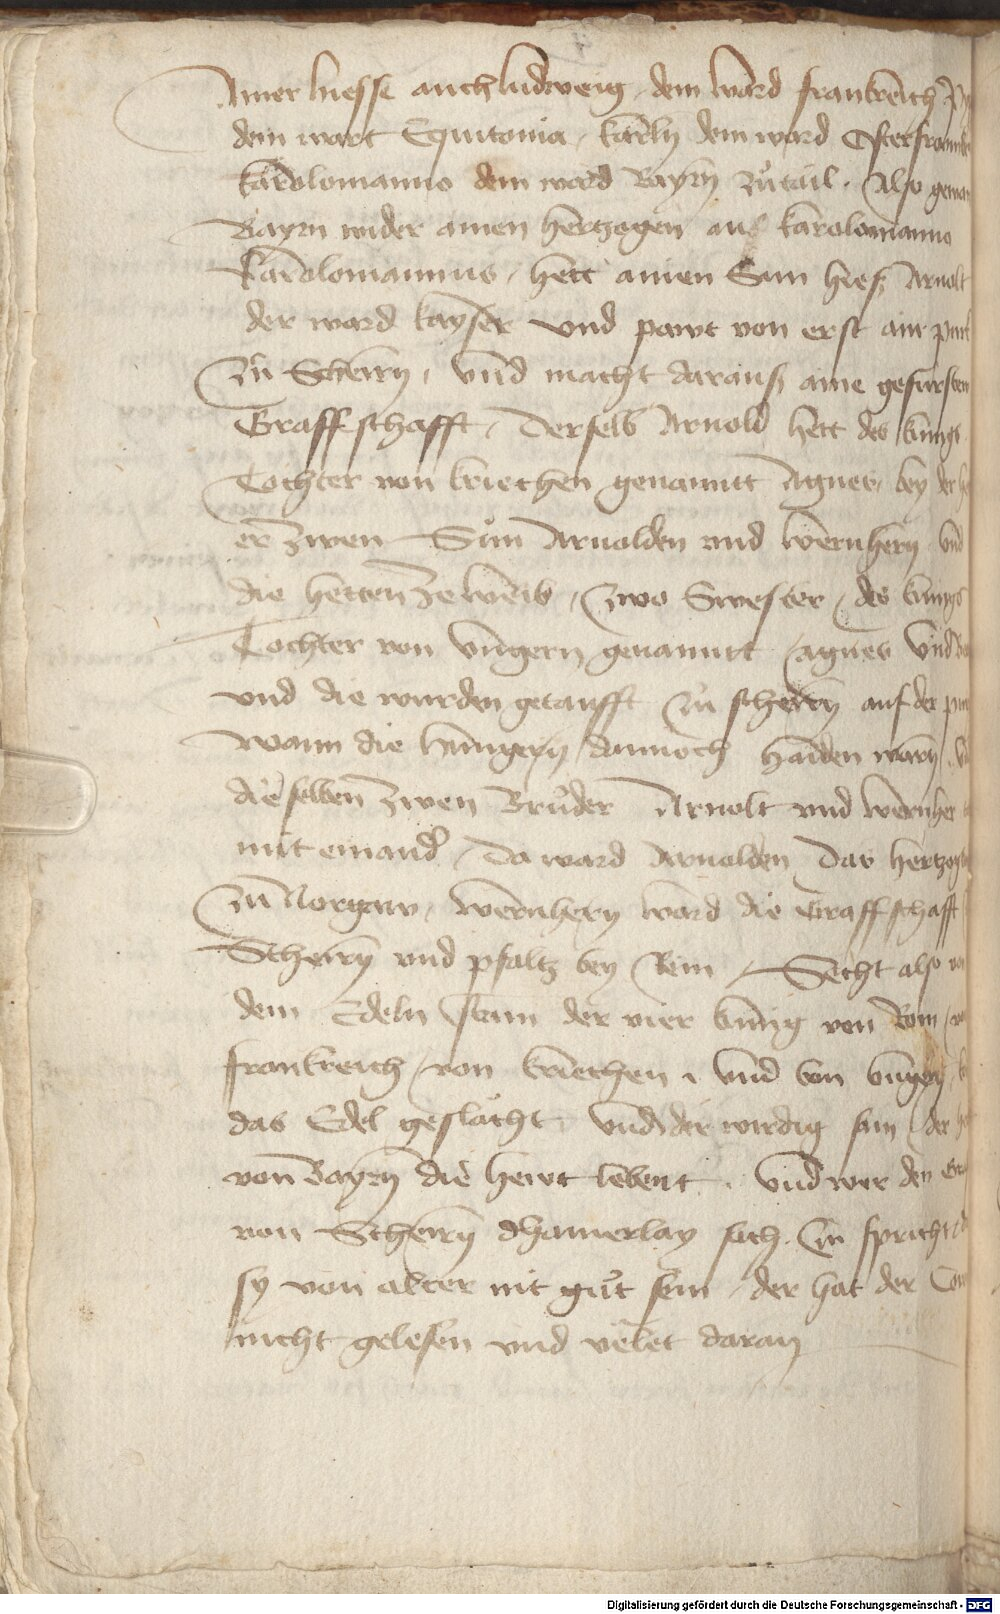 Ainer hiesse auch ludweig, dem ward frankreich
dem wart Equitonia, karln dem ward Osterfrannk
karolomanno dem ward Bayrn zůtail. Also gewan
Bayrn wider ainen hertzogen aus karolomanno
Karolomannus, hett ainen Sun hies Arnolt
der ward kayser vnd pawt von erst ain purk
zů Scheirn, vnd macht daraus aine gefürsten
Graffschafft, Derselb Arnold hett des küngs
Tochter von kriechen genannt Agnes, bey der
er zwen Sün Arnolden und wernhern vnd
die hetten ze weib, zwo Swester, des küngs
Tochter von vngern genannt agnes vnd
vnd die wurden getaufft zů scheirn auf der
wann die hungern dannoch haiden warn
dieselben zwen Brůder Arnolt vnd wernher
mit einander, Da ward Arnolden das hertzog
zů Norgaw, wernhern ward die Graffschafft
Scheirn vnd pfaltz bey Rein, Secht also von
dem Edeln stam der vier küng von Rom, von
frankreich, von kriechen, vnd von vngern,
das Edel geslächt vnd der wirdig sam der
von Bayrn die hewt lebent. vnd wer den
von Scheirn dhainerlay sach. zu spricht
sy von alter nit gůt sein, der hat der
nicht gelesen vnd velet daran
Digitalisierung gefördert durch die Deutsche Forschungsgemeinschaft - DFG